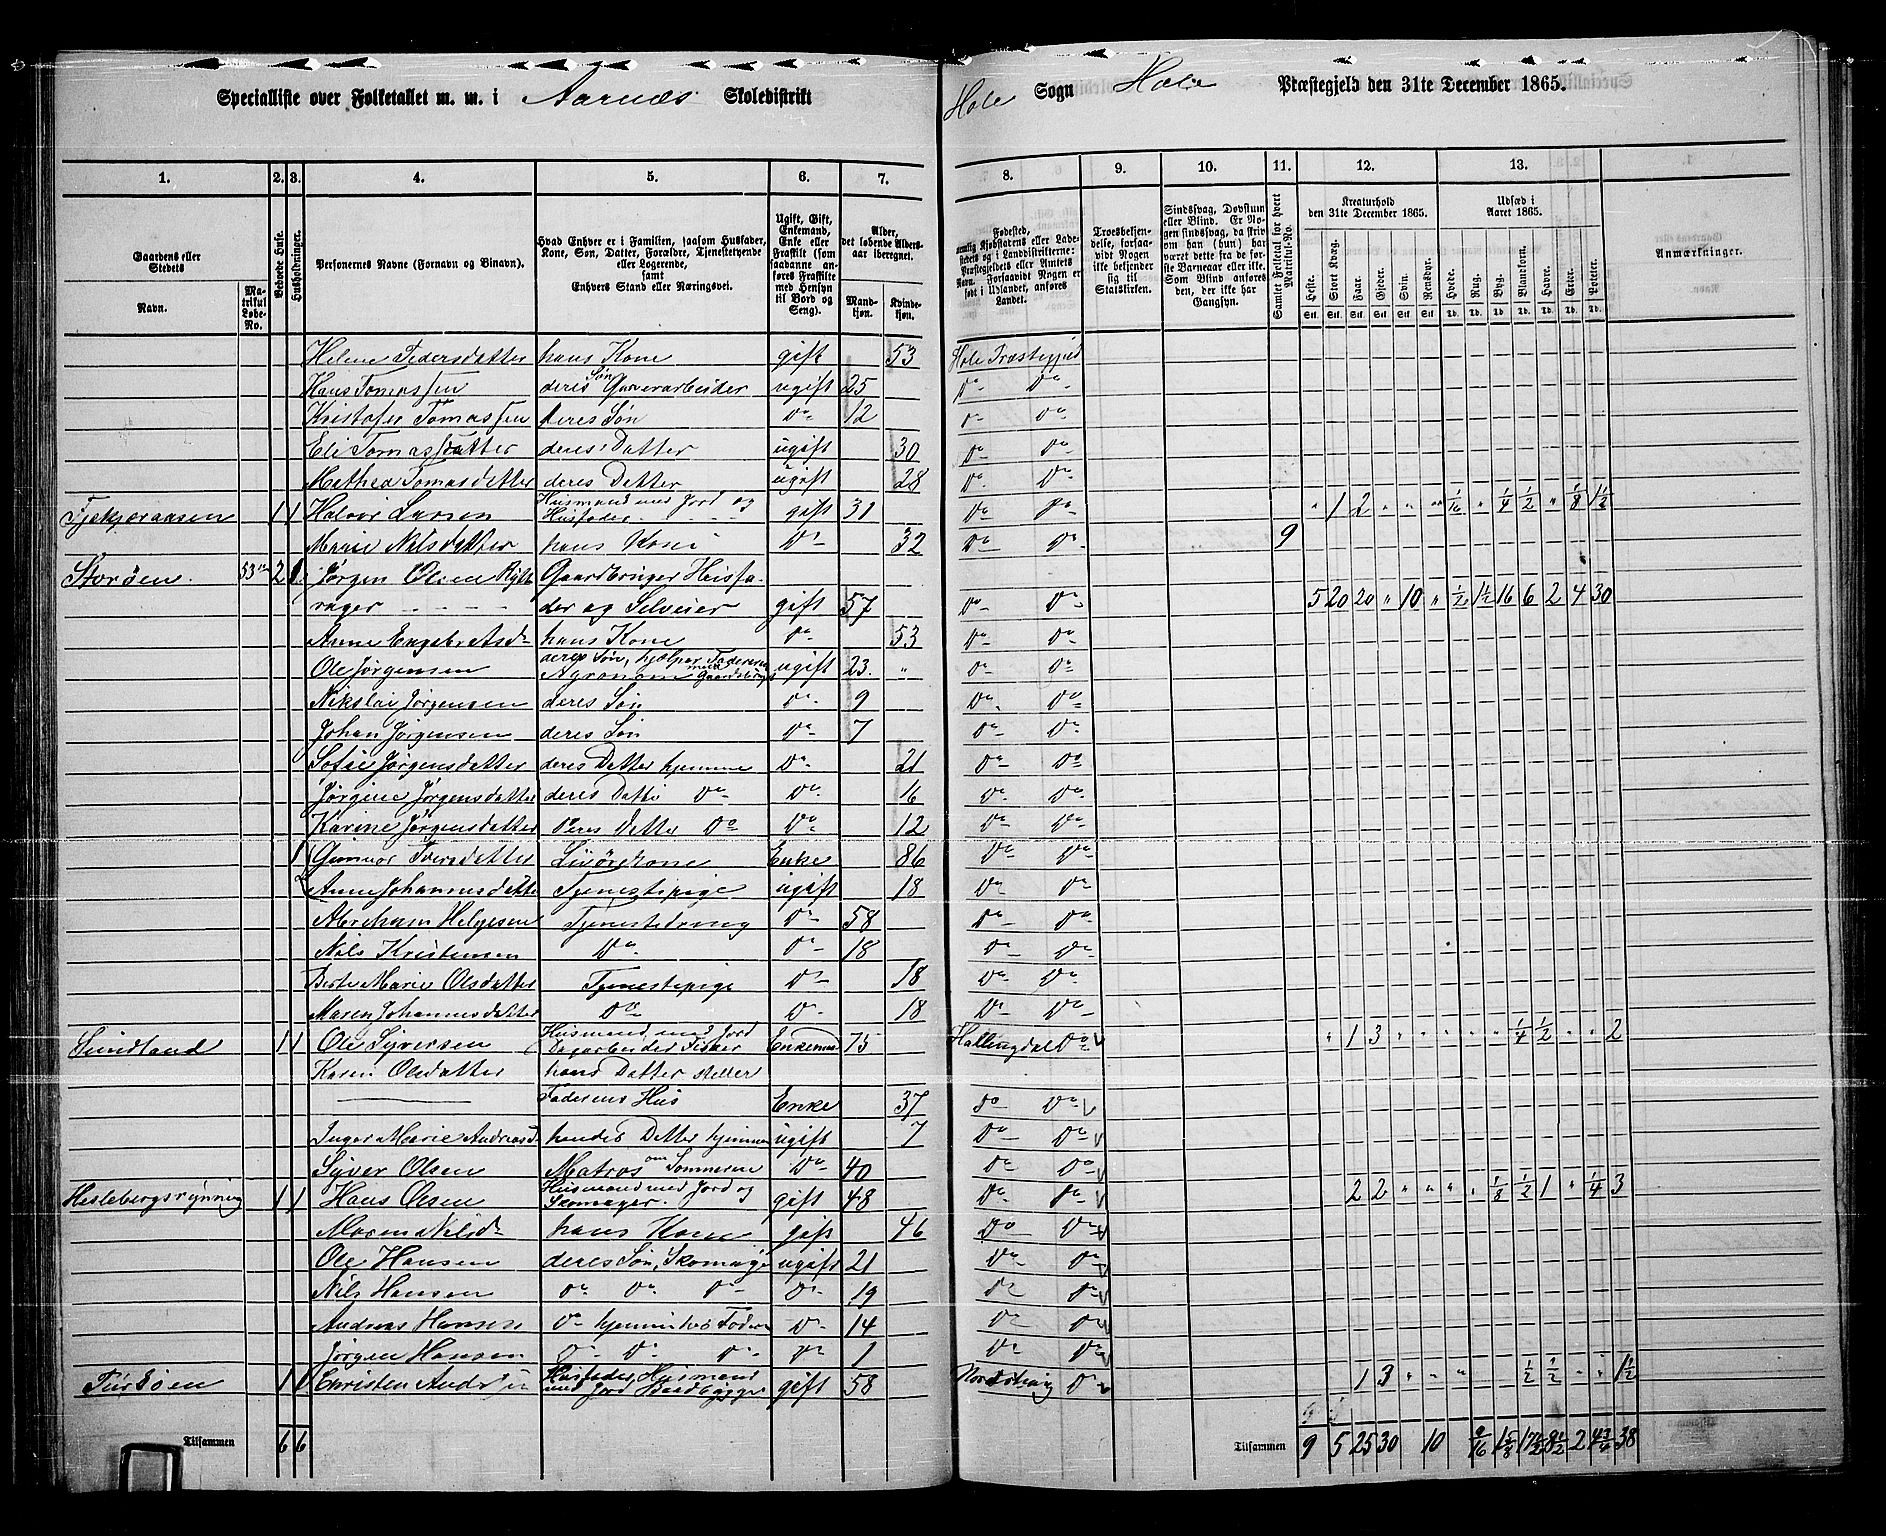 Specialliste over Folketallet m. m. i Aarnæs Skoledistrikt Hole Sogn Hole Præstegjeld den 31te December 1865.
1. 2. 3. 4. 5. 6. 7. 8. 9. 10. 11. 12. 13.
Gaardens eller Stedets Navn. Matrikul Løbe-No.
Beboede Huse.
Husholdninger.
Personernes Navne (Fornavn og Binavn).
Hvad Enhver er i Familien, saasom Husfader, Kone, Søn, Datter, Forældre, Tjenestetyende eller Logerende, samt Enhvers Stand eller Næringsvei.
Ugift, Gift, Enkemand, Enke eller Fraskilt (som saadanne anføres Fraskilte med Hensyn til Bord og Seng).
Alder, det løbende Aldersaar iberegnet. Mandkjøn. Kvindekjøn.
Troesbekjendelse, forsaavidt Nogen ikke bekjender sig til Statskirken.
Sindssvag, Døvstum eller Blind. Er Nogen sindssvag, da skrives om han (hun) har været dette fra de første Barneaar eller ikke. Som Blind anføres den, der ikke har Gangsyn.
Samlet Folketal for hvert Matrikul-No.
Kreaturhold den 31te December 1865.
Heste. Stort Kvæg. Faar. Gjeder. Svin. Rensdyr.
Udsæd i Aaret 1865.
Hvede. Rug. Byg. Blandkorn. Havre. Erter. Poteter.
Anmærkninger.
Helene Pedersdatter hans Kone gift 53 Hole Præstegjeld
Hans Tomassen deres Søn Garverarbeider ugift 25 Do Do
Kristofer Tomassen deres Søn Do 12 Do Do
Eli Tomasdatter deres Datter ugift 30 Do Do
Mathea Tomasdatter deres Datter ugift 28 Do Do
1 1 Halvor Larsen Husmand med Jord og Husfader gift 31 Do Do " 1 2 " " " 1/16 " 1/4 1/2 " 1/8 1 1/2
Marie Nilsdatter hans Kone Do 32 Do Do 9
Storøen 53 2 1 Jørgen Olsen Gaardbruger Husfa-
der og Selveier gift 57 Do Do 5 20 20 " 10 " 1/2 1 1/2 16 6 2 4 30
Anne hans Kone Do 53 Do Do
Ole Jørgensen deres Søn, hjælper Faderen med Gaardsbruget Agronom ugift 23 " Do Do
Nikolai Jørgensen deres Søn Do 9 Do Do
Johan Jørgensen deres Søn Do 7 Do Do
Sofie Jørgensdatter deres Datter hjemme Do 21 Do Do
Jørgine Jørgensdatter deres Datter Do Do 16 Do Do
Karine Jørgensdatter deres Datter Do Do 12 Do Do
1 Gunvor Iversdatter Livørekone Enke 86 Do Do
Anne Johannesdatter Tjenestepige ugift 18 Do Do
Abraham Helgesen Tjenestedreng Do 58 Do Do
Nils Kristensen Do Do 18 Do Do
Berte Marie Olsdatter Tjenestepige Do 18 Do Do
Maren Johannesdatter Do Do 18 Do Do
Sundland 1 1 Ole Syversen Husmand med Jord Dagarbeider Fisker Enkemand 75 Hallingdal Do " 1 3 " " " " " 1/4 1/2 " " 2
Karen Olsdatter hans Datter steller
Faderens Hus Enke 37 Do Do
Inger Marie Andreasd hendes Datter hjemme ugift 7 Do Do
Syver Olsen Matros om Sommeren Do 40 Do Do
1 1 Hans Olsen Husmand med Jord og Skomager. gift 48 Do Do 2 2 " " " " 1/8 1/2 1 " 1/4 3
Maren Nilsd hans Kone gift 46 Do Do
Ole Hansen deres Søn, Skomager ugift 21 Do Do
Nils Hansen Do Do Do Do 19 Do Do
Andreas Hansen Do hjemme hos Fader Do 14 Do Do
Jørgen Hansen Do Do Do Do 1 Do Do
1 1 Christen Husfader, Husmand med Jord gift 58 Do 1 3 " " " 1/2 1/2 " " 1 1/2
Tilsammen 6 6 Tilsammen 9 5 25 30 10 9/16 1 5/8 17 1/2 8 1/2 2 4 3/4 38